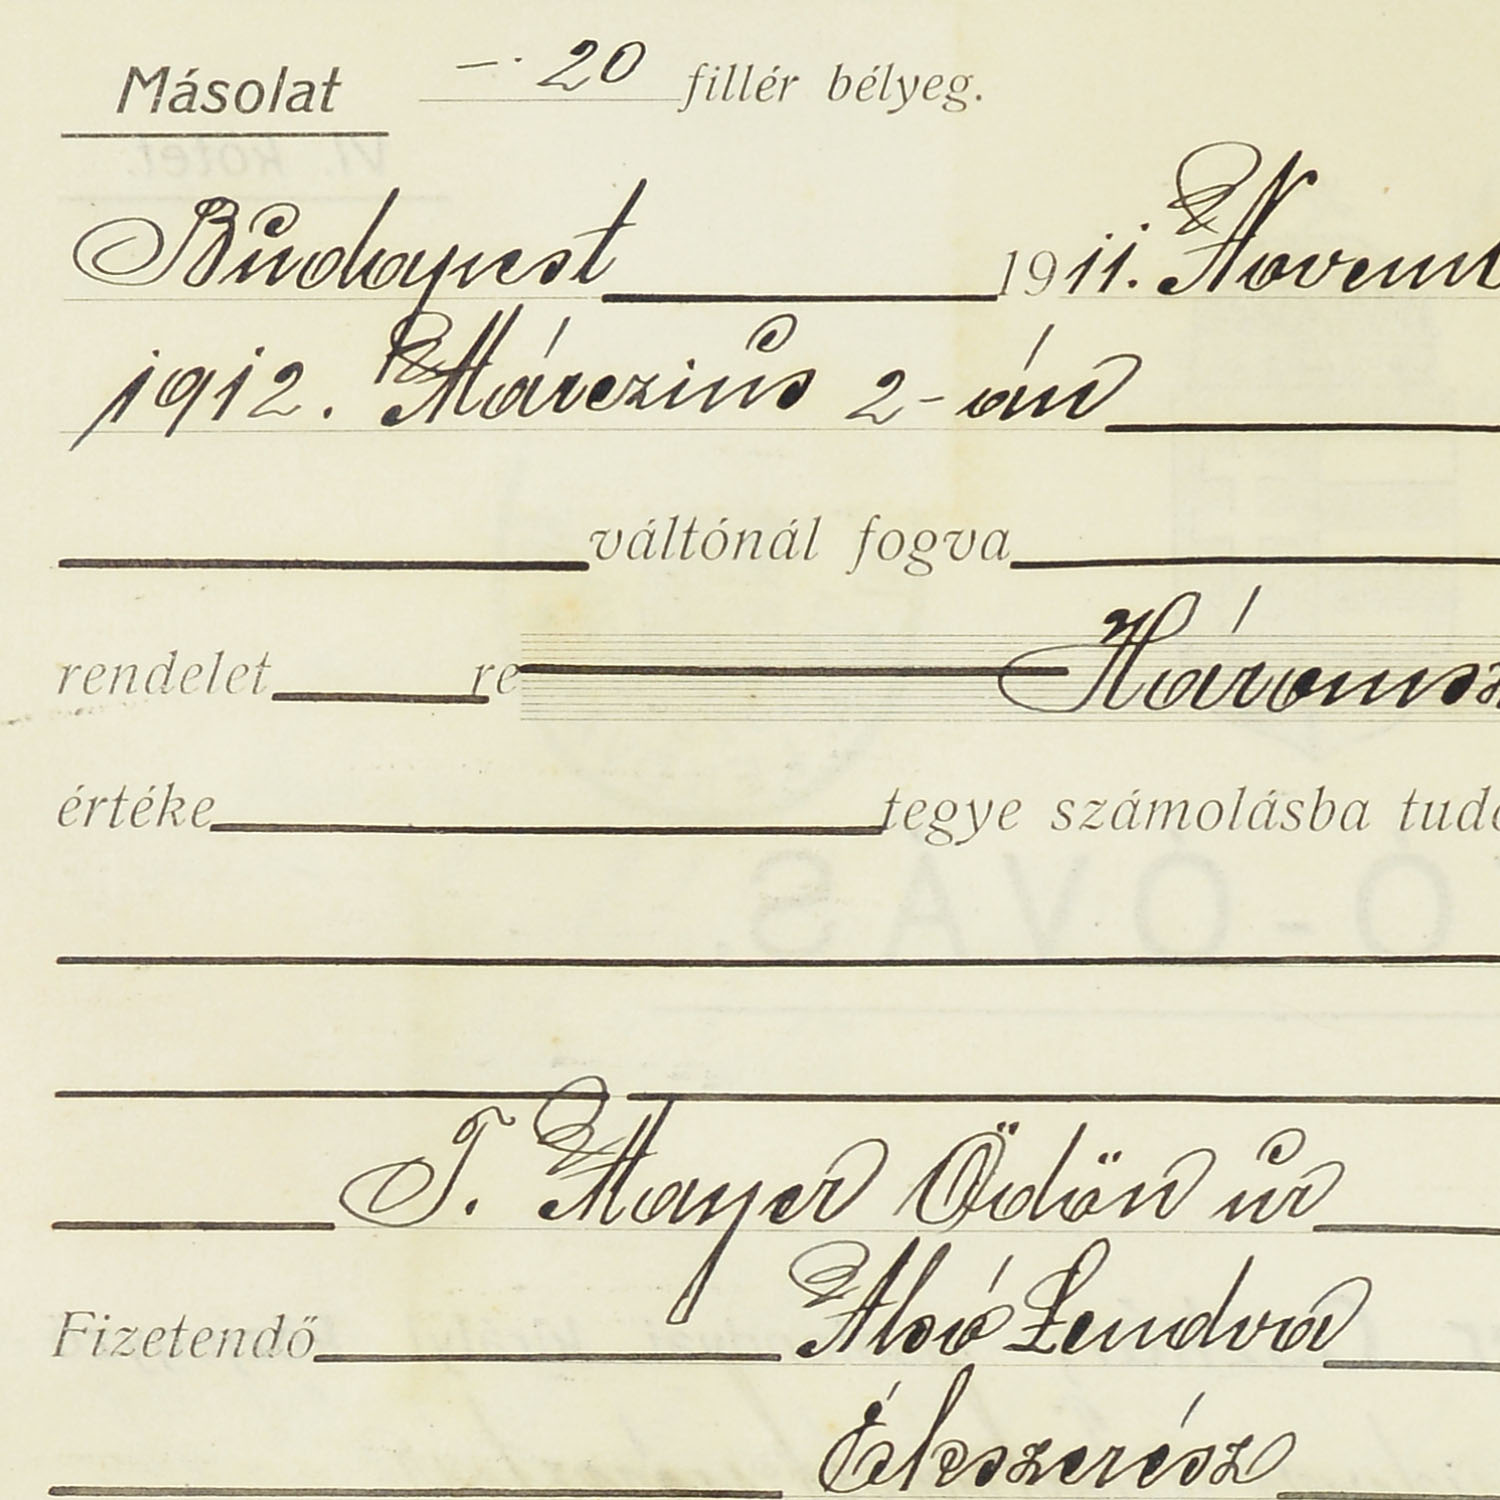 Másolat —· 20 fillér bélyeg.
Budapest 1911. Novem
1912. Márczius 2-án
váltónál fogva
rendelet re Háromsz
értéke tegye számolásba tud
T. Mayer Ödön úr
Fizetendő Alsó Lendva
Ékszerész